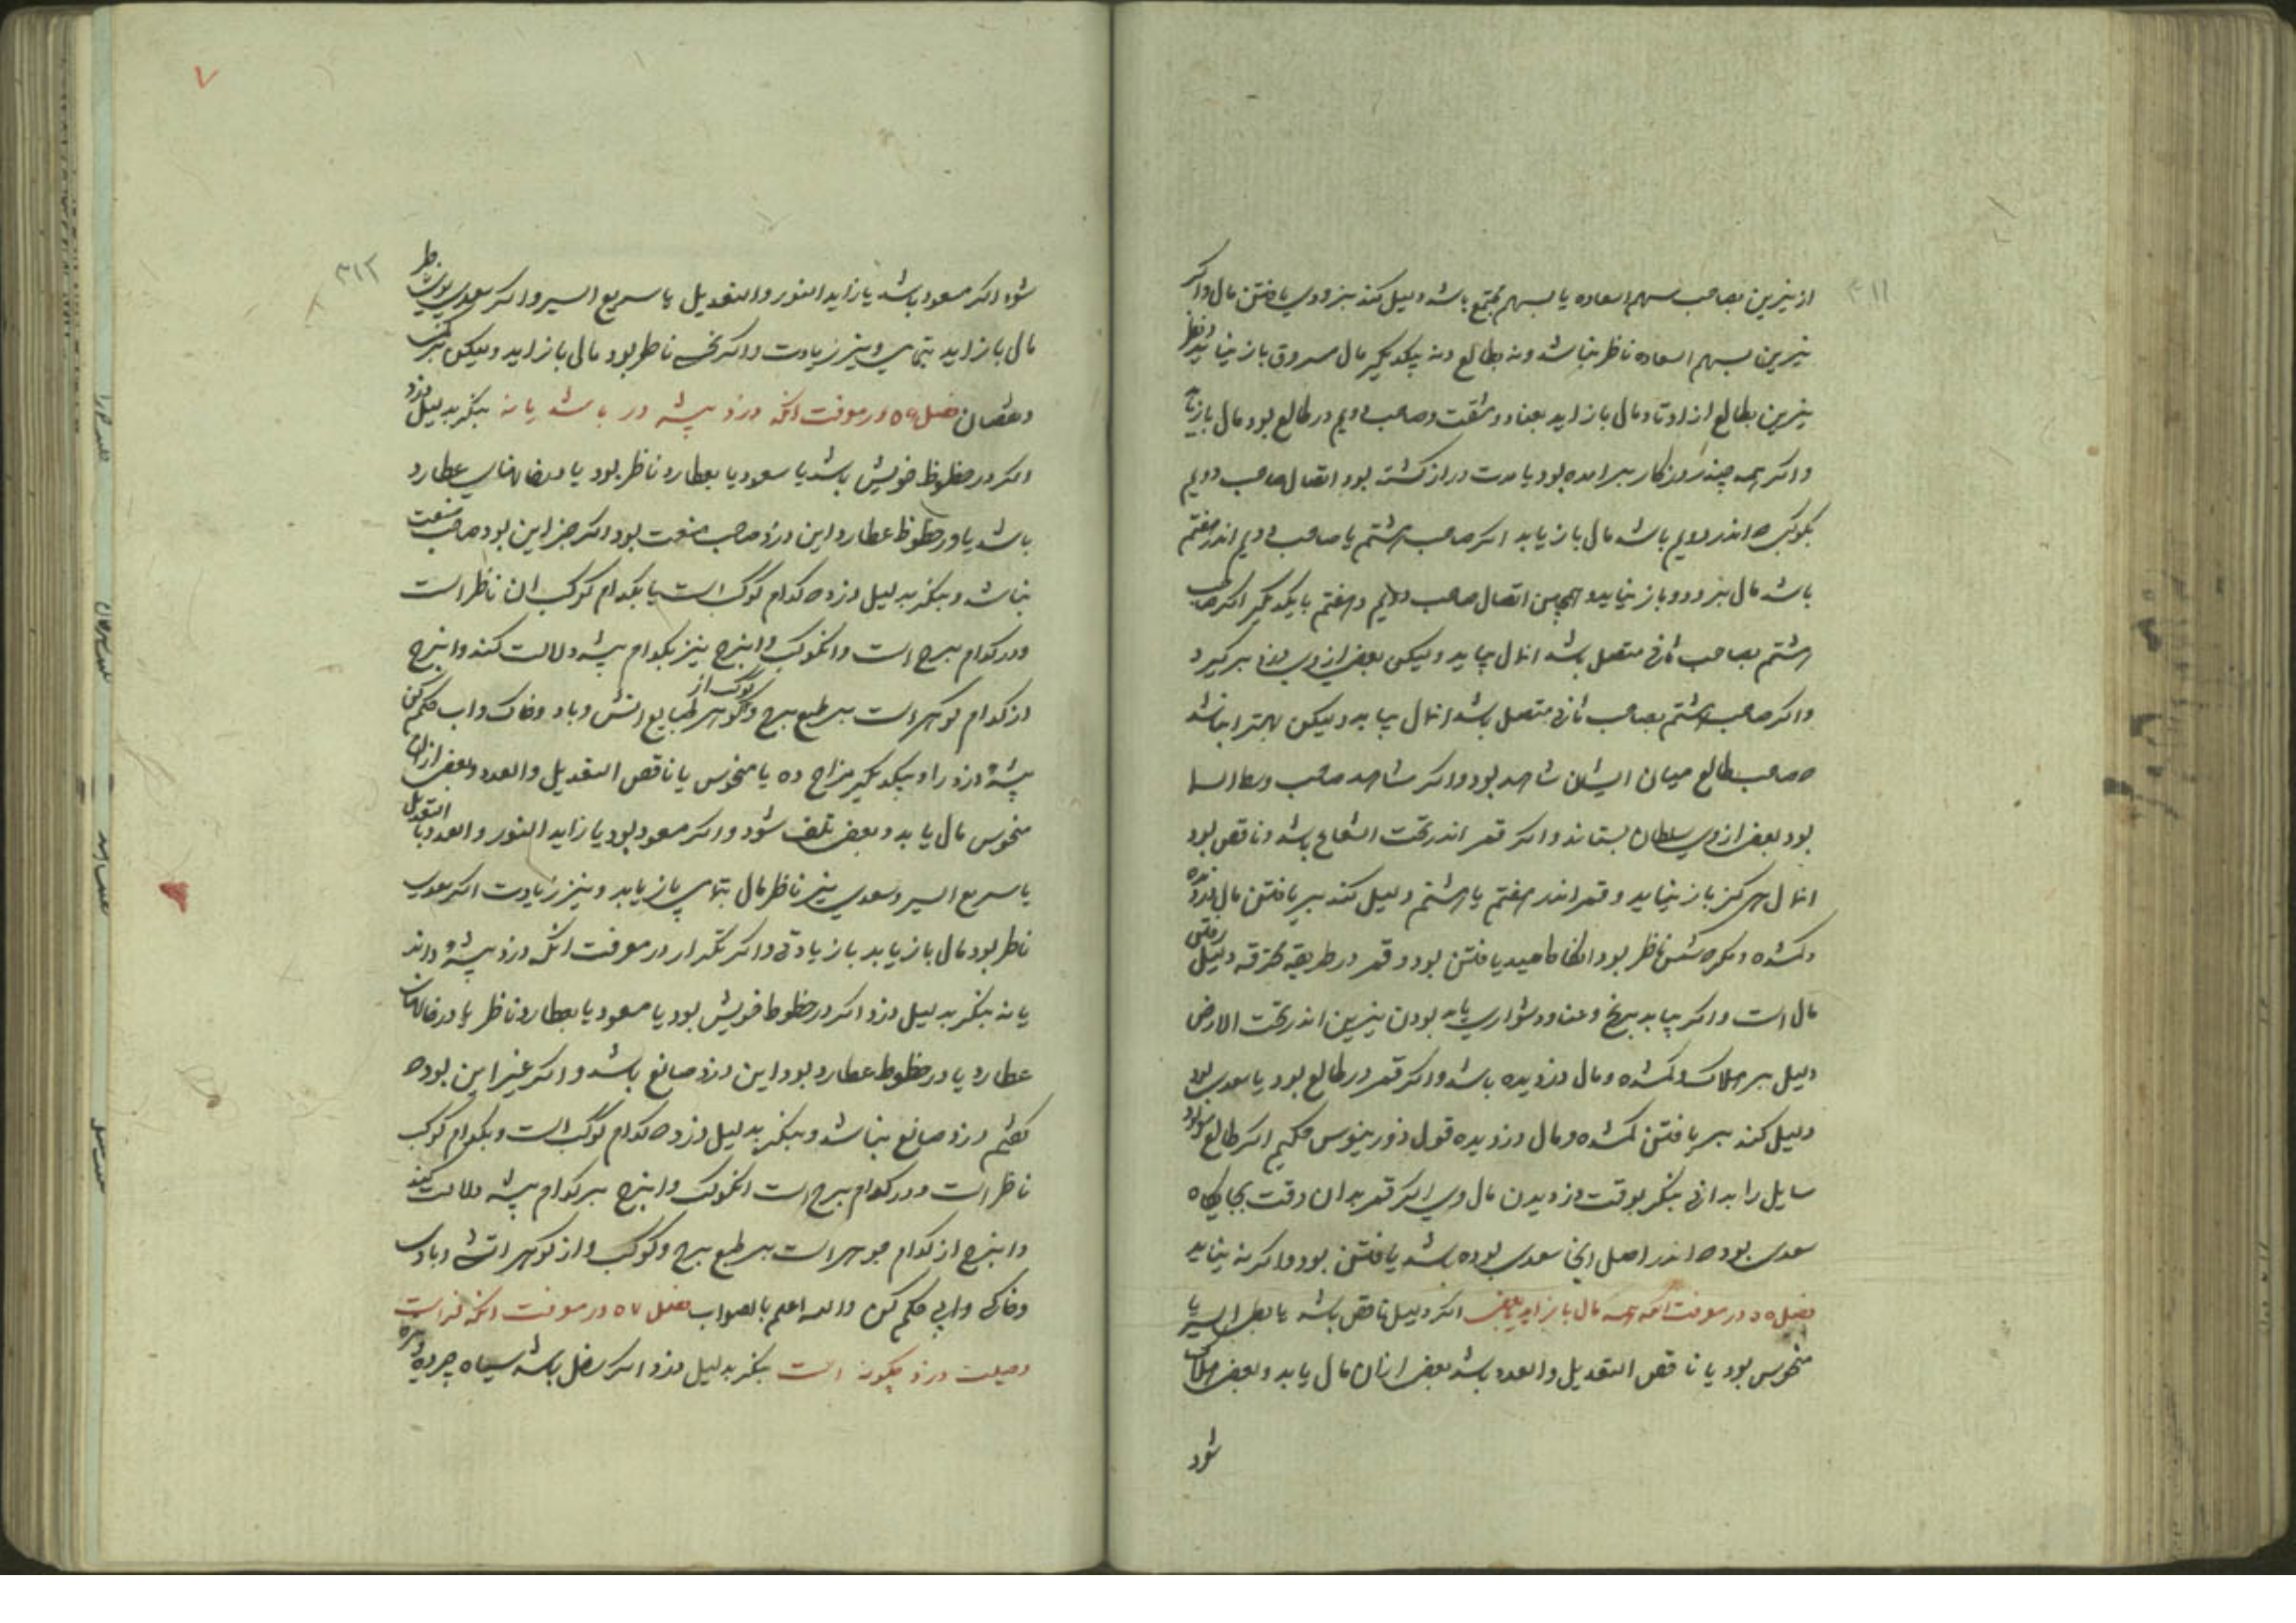 ۳۱۱
از نیرین بصاحب سهم السعاده یا بسهم مجتمع باشد دلیل کند بزودی یافتن مال واکر
نیرین بسهم السعاده ناظر نباشد ونه بطالع ونه بیکدیگر مال مسروق باز نیابد ونظر
نیرین بطالع از اوتاد مال باز اید بعناد ومشقت وصاحب دویم در طالع بود مال باز یابد
واکر همه چند روزکار برامده بود یا مدت دراز کشته بود اتصال صاحب دویم
بکوکب که اندر دویم باشد مال باز یابد اکر صاحب هشتم یا صاحب دویم اندر هفتم
باشد مال برود وباز نیاید وهمچنین اتصال صاحب دویم وهفتم بایکدیگر اکر صاحب
هشتم بصاحب ثانی متصل باشد انمال بیابد ولیکن بعضی از وی بدزد برگیرد
واکر صاحب هشتم بصاحب ثانی متصل باشد انمال بیابد ولیکن بهتر انباشد
که صاحب طالع میان ایشان شاهد بود واکر شاهد صاحب وسط السما
بود بعضی از وی سلطان بستاند واکر قمر اندر تحت الشعاع باشد وناقص بود
انمال هرکز باز نیابد وقمر اندر هفتم یا هشتم دلیل کند بر یافتن مال دزدیده
وکمشده ونکره شمس ناظر بود انکاه امید یافتن بود وقمر در طریقه محترقه دلیل رفتن
مال است واکر بیابد برنج وعنا ودشواری یابد بودن نیرین اندر تحت الارض
دلیل بر هلاک وکمشده ومال دزدیده باشد واکر قمر در طالع بود یا سعدی بود
دلیل کند بر یافتن کمشده ومال دزدیده قول ذورنیوس حکیم اکر طالع مولود
سایل را بدانی بنکر بوقت دزدیدن مال وی اکر قمر بدان وقت بجایگاه
سعدی بود که اندر اصل انجا سعدی بوده باشد یافتن بود واکر نه نیابد
فصل ۵۵ در معرفت انکه همه مال باز اید یا بعضی اکر دلیل ناقص باشد یا بطی السیر یا
منحوس بود یا ناقص التعدیل والعدد باشد بعضی ازان مال یابد وبعضی هلاک
شود
۳۱۲
شود اکر مسعود باشد یا زاید النور والتعدیل یا سریع السیر واکر سعدی بوی ناظر
مال باز اید بتمامی ونیز زیادت واکر نحس ناظر بود مال باز اید ولیکن کمتر
ونقصان فصل ۵۶ در معرفت انکه دزد پیشه ور باشد یا نه بنکر بدلیل دزد
اکر در حظوظ خویش باشد یا مسعود یا بعطارد ناظر بود یا در خانهای عطارد
باشد یا در حظوظ عطارد این دزد صاحب صنعت بود اکر جز این بود صاحب صنعت
نباشد وبنکر بدلیل دزد که کدام کوکب است یا بکدام کوکب ان ناظر است
ودر کدام برج است وانکوکب وانبرج نیز بکدام پیشه دلالت کنند وانبرج
از کدام کوهر است بر طبع برج وکوکب از کوهر طبایع اتش وباد وخاک واب حکم کن
پیشه دزد را وبیکدیگر مزاج ده یا منحوس یا ناقص التعدیل والعدد وبعضی ازان
منحوس مال یابد وبعضی تلف شود واکر مسعود بود یا زاید النور والعدد یا التعدیل
یا سریع السیر وسعدی نیز ناظر مال بتمامی باز یابد ونیز زیادت اکر سعدی
ناظر بود مال باز یابد باز یادتی واکر تکرار در معرفت انکه دزد پیشه داند
یا نه بنکر بدلیل دزد اکر در حظوط خویش بود یا مسعود یا بعطارد ناظر یا در خانهای
عطارد یا در حظوط عطارد بود این دزد صانع باشد واکر غیر این بود که
کفتم دزد صانع نباشد وبنکر بدلیل دزد که کدام کوکب است وبکدام کوکب
ناظر است ودر کدام برج است انکوکب وانبرج بر کدام پیشه دلالت کنند
وانبرج از کدام جوهر است بر طبع برج وکوکب واز کوهر اتشی وبادی
وخاکی وابی حکم کن والله اعلم بالصواب فصل ۵۷ در معرفت انکه
وصیلت دزد چکونه است بنکر بدلیل دزد اکر زحل باشد سیاه چرده